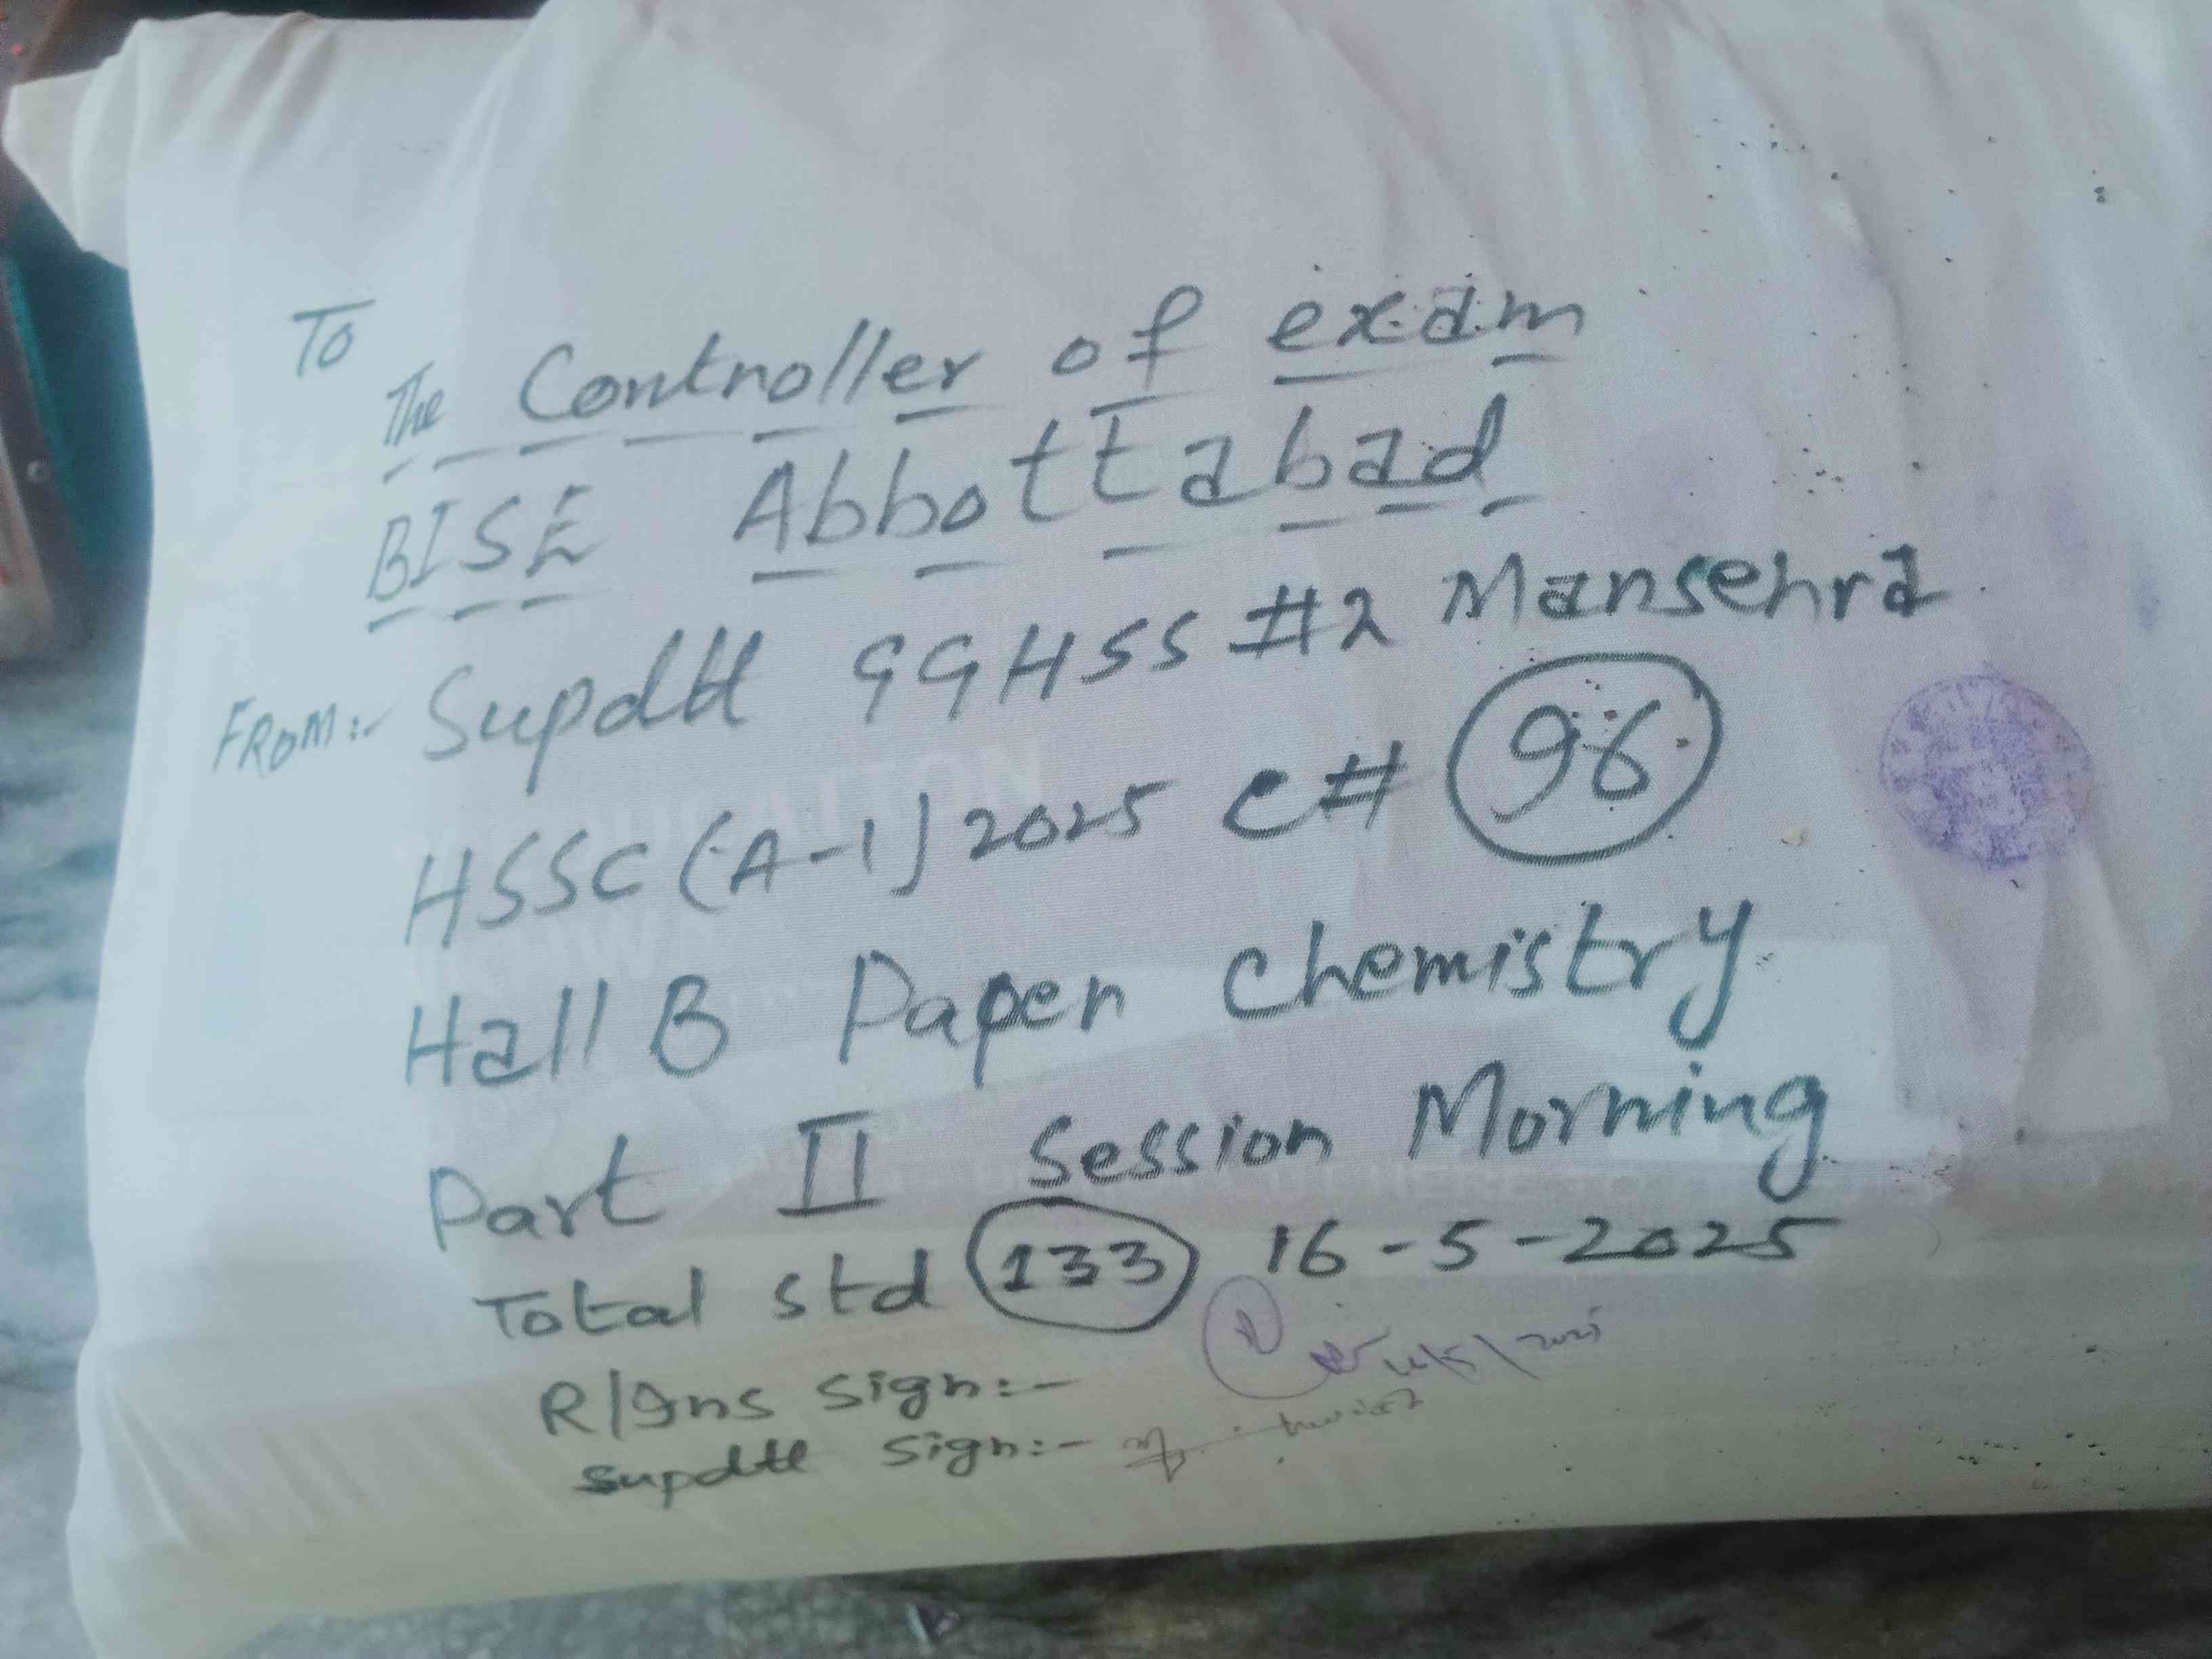 To
The Controller of exam
BISE Abbottabad
FROM:- Supdtt GGHSS #2 Mansehra
HSSC (A-1) 2025 C# 96
Hall B Paper Chemistry
Part II Session Morning
Total std 133 16-5-2025
R/Ins Sign:-
Supdtt Sign:-